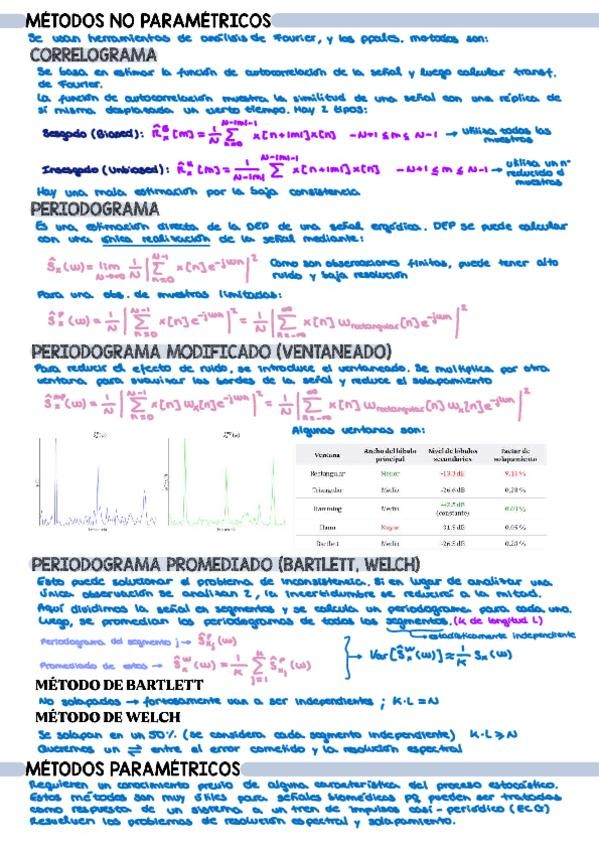 MÉTODOS NO PARAMÉTRICOS
Se usan herramientas de análisis de Fourier, y los ppales. métodos son:
CORRELOGRAMA
Se basa en estimar la función de autocorrelación de la señal y luego calcular transf.
de Fourier.
La función de autocorrelación muestra la similitud de una señal con una réplica de
sí misma desplazada un cierto tiempo. Hay 2 tipos:
Sesgado (Biased): R̂ₓᴮ[m] = 1/N Σ_{n=0}^{N-|m|-1} x[n+|m|]x[n]   -N+1 ≤ m ≤ N-1 → utiliza todas las muestras
Insesgado (Unbiased): R̂ₓ[m] = 1/(N-|m|) Σ x[n+|m|]x[n]   -N+1 ≤ m ≤ N-1 → utiliza un nº reducido d muestras
Hay una mala estimación por la baja consistencia
PERIODOGRAMA
Es una estimación directa de la DEP de una señal ergódica. DEP se puede calcular
con una única realización de la señal mediante:
Ŝₓ(ω) = lim_{N→∞} 1/N |Σ_{n=0}^{N-1} x[n]e^{-jωn}|²   Como son observaciones finitas, puede tener alto
ruido y baja resolución
Para una obs. de muestras limitadas:
Ŝₓᴾ(ω) = 1/N |Σ_{n=0}^{N-1} x[n]e^{-jωn}|² = 1/N |Σ_{n=-∞}^{∞} x[n] ω_{rectangular}[n]e^{-jωn}|²
PERIODOGRAMA MODIFICADO (VENTANEADO)
Para reducir el efecto de ruido, se introduce el ventaneado. Se multiplica por otra
ventana para suavizar los bordes de la señal y reduce el solapamiento
Ŝₓᵐᴾ(ω) = 1/N |Σ_{n=0}^{N-1} x[n] ωₓ[n]e^{-jωn}|² = 1/N |Σ_{n=-∞}^{∞} x[n] ω_{rectangular}[n] ωₓ[n]e^{-jωn}|²
Algunas ventanas son:
Ventana   Ancho del lóbulo principal   Nivel de lóbulos secundarios   Factor de solapamiento
Rectangular   Menor   -13.3 dB
Triangular   Medio   0.28 %
Hamming   Medio   (constante)
Hann   Mayor   -31.5 dB   0.05 %
Bartlett   Medio   -26.5 dB   0.28 %
PERIODOGRAMA PROMEDIADO (BARTLETT, WELCH)
Esto puede solucionar el problema de inconsistencia. Si en lugar de analizar una
única observación se analizan 2, la incertidumbre se reducirá a la mitad.
Aquí dividimos la señal en segmentos y se calcula un periodograma para cada uno.
Luego, se promedian los periodogramas de todos los segmentos. (K de longitud L)
estadísticamente independiente
Periodograma del segmento j → Ŝₓⱼᴾ(ω)
Promediado de estos → Ŝₓᵂ(ω) = 1/K Σ_{j=1}^{K} Ŝₓⱼᴾ(ω)   Var[Ŝₓᵂ(ω)] ≈ 1/K Sₓ(ω)
MÉTODO DE BARTLETT
No solapados → forzosamente van a ser independientes ; K·L = N
MÉTODO DE WELCH
Se solapan en un 50% (se considera cada segmento independiente)   K·L ≥ N
Queremos un ⇌ entre el error cometido y la resolución espectral
MÉTODOS PARAMÉTRICOS
Requieren un conocimiento previo de alguna característica del proceso estocástico.
Estos métodos son muy útiles para señales biomédicas pq pueden ser tratadas
como respuesta de un sistema a un tren de impulsos casi-periódico (ECG)
Resuelven los problemas de resolución espectral y solapamiento.